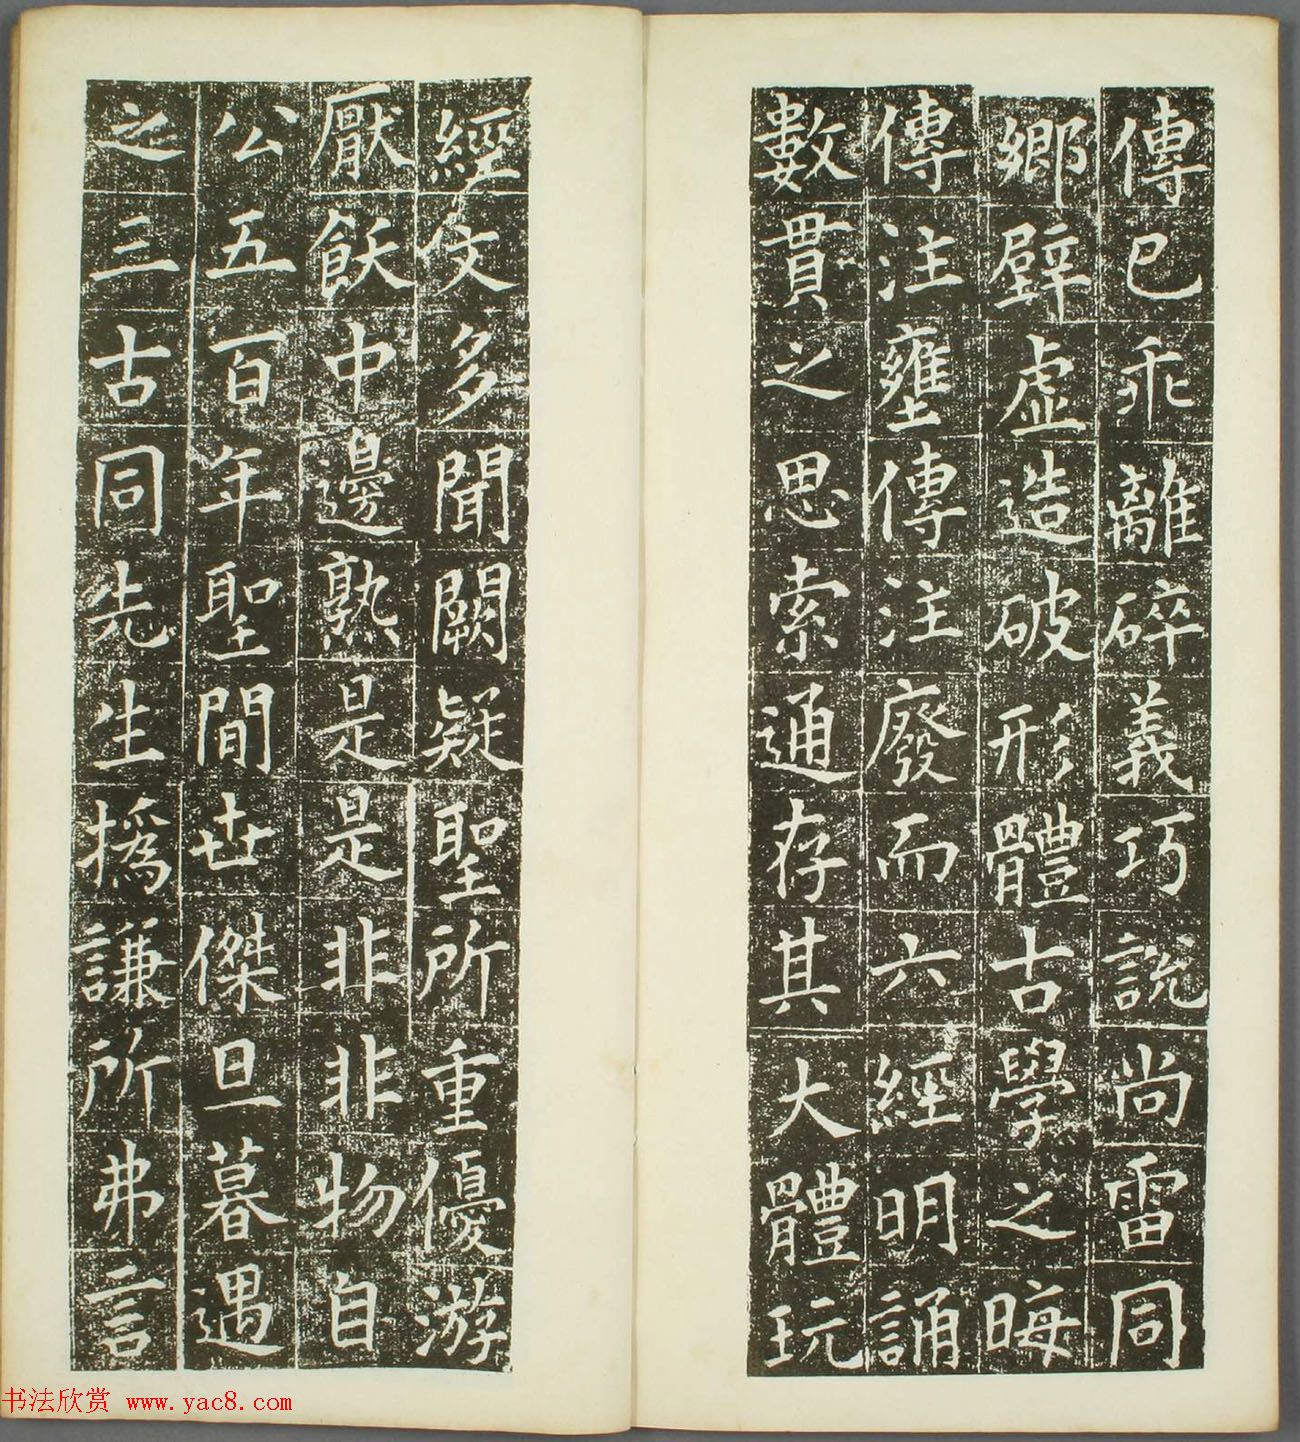 傳已乖離碎義巧說尚雷同
鄉壁虛造破形體古學之晦
傳注壅傳注廢而六經明誦
數貫之思索通存其大體玩
經文多聞闕疑聖所重優游
厭飫中邊熟是是非非物自
公五百年聖間世傑旦暮遇
之三古同先生撝謙所弗言
书法欣赏 www.yac8.com